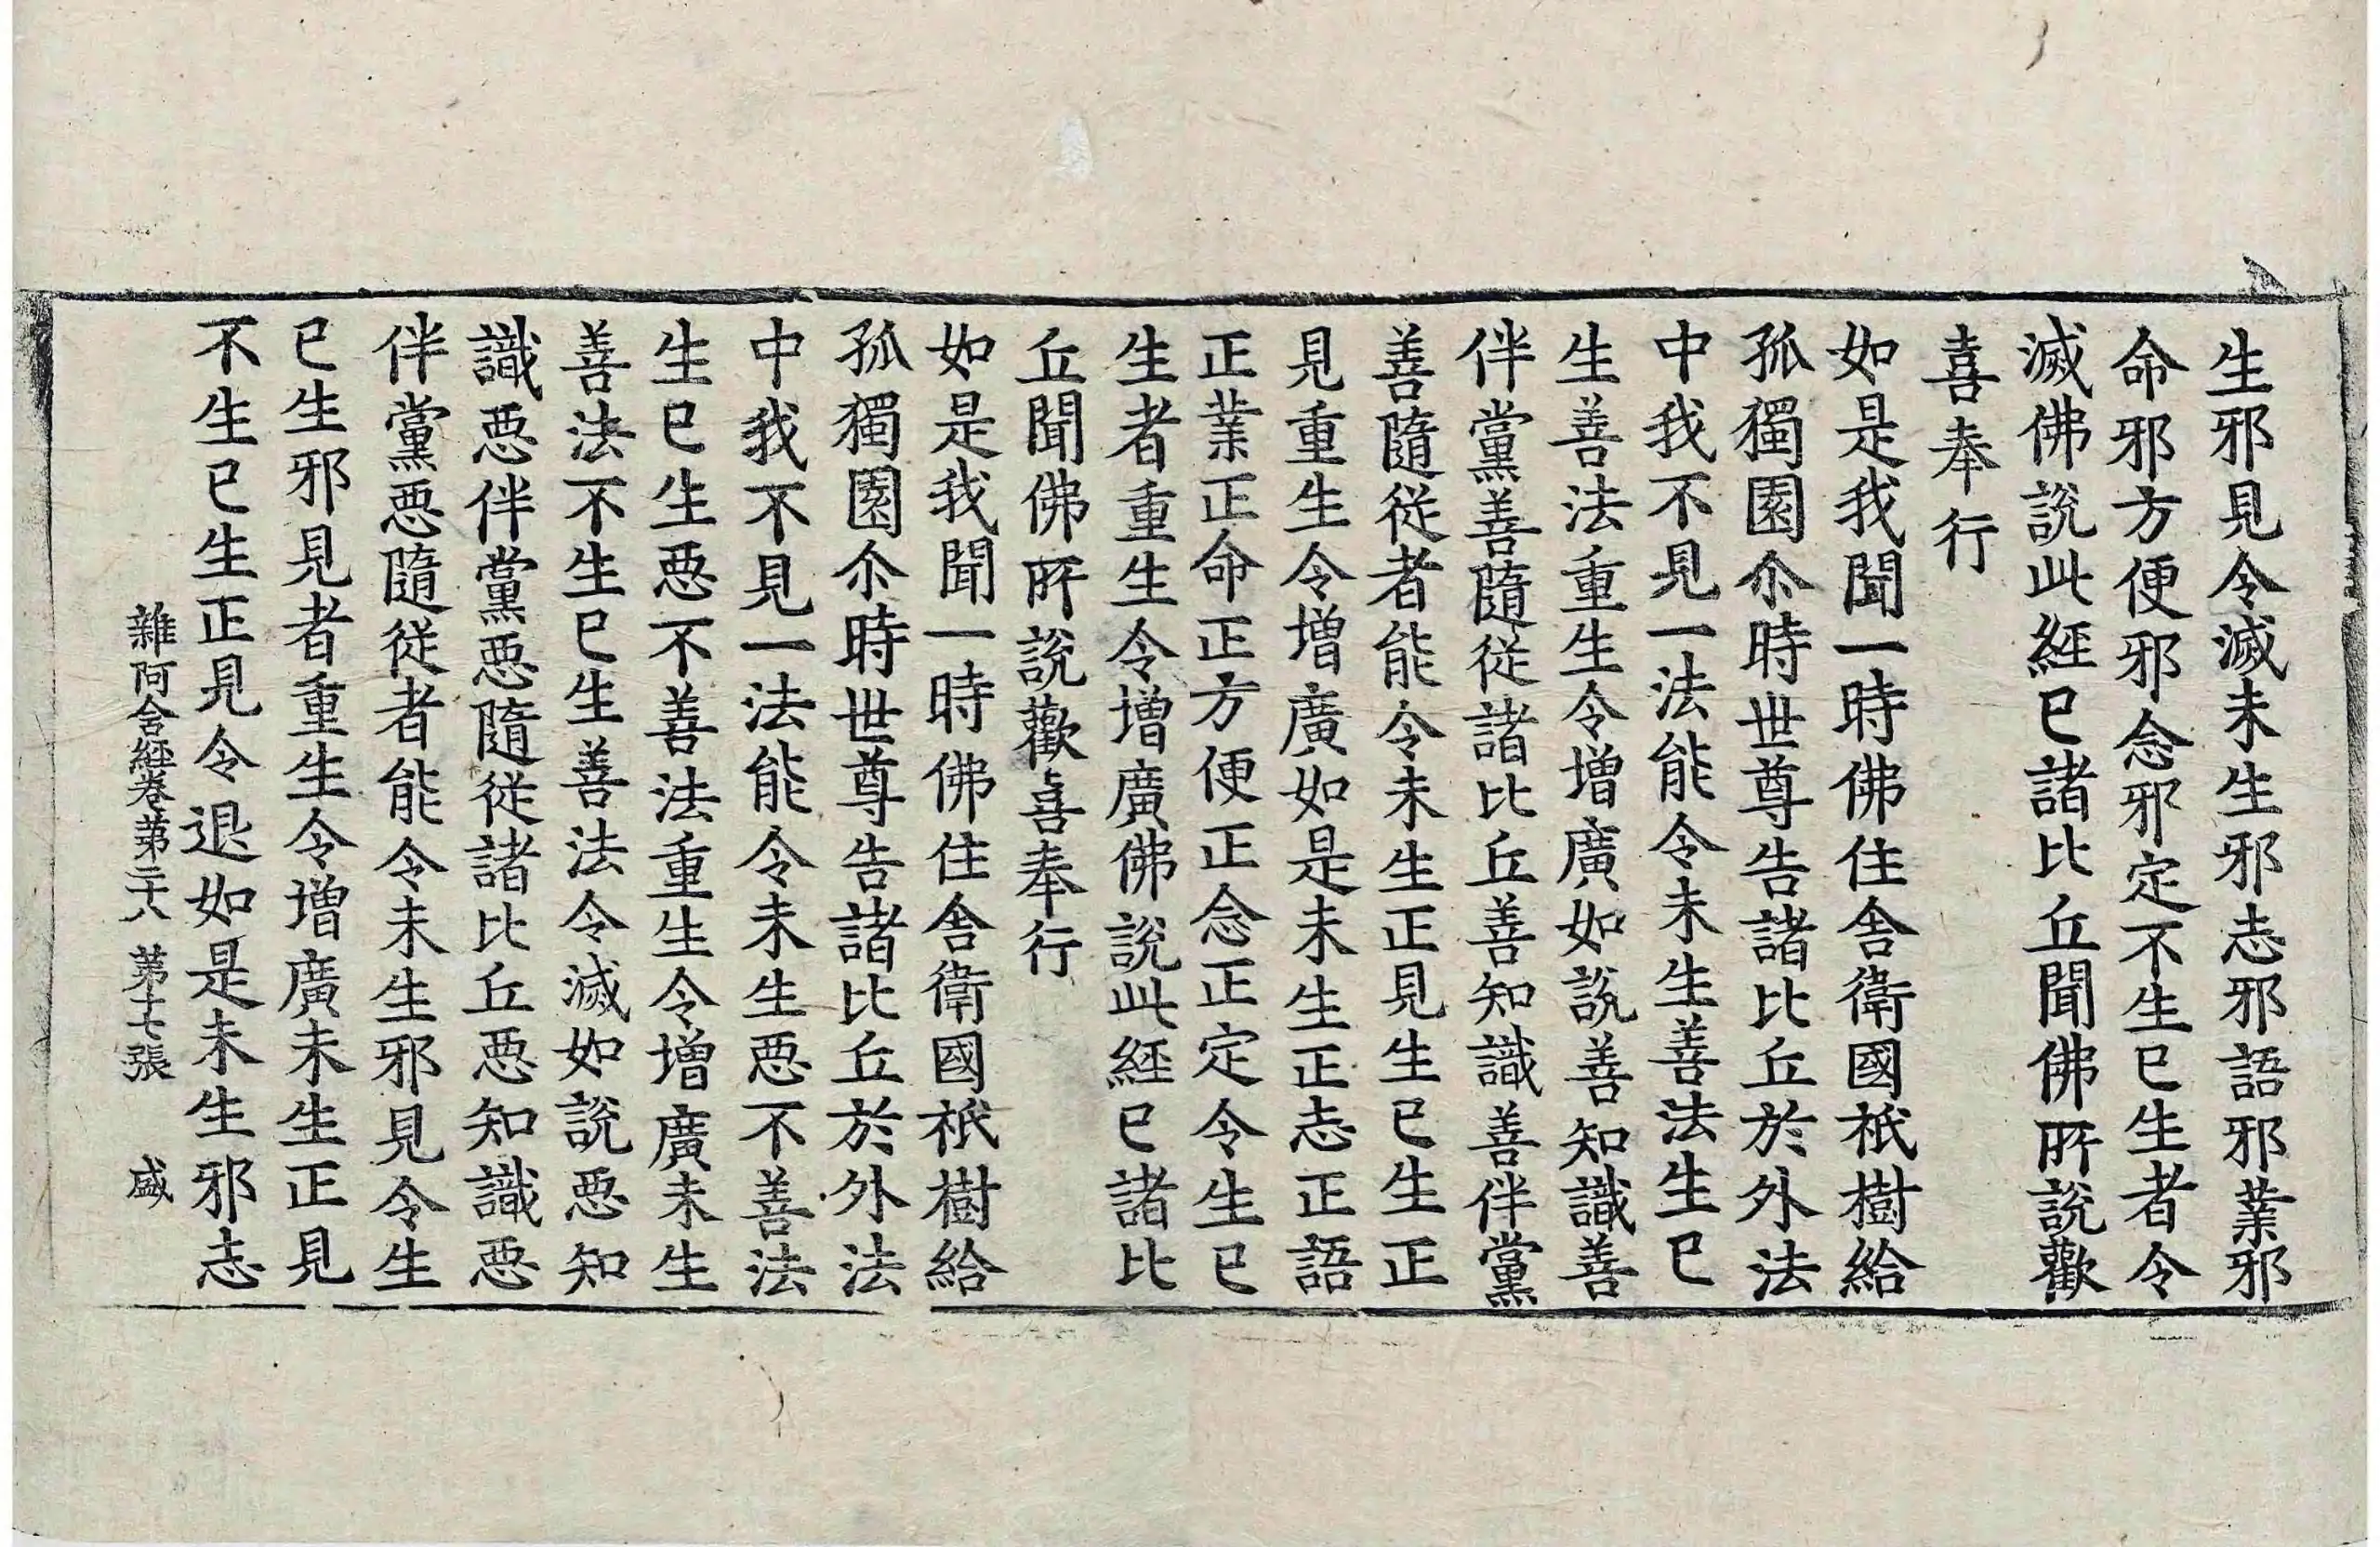 生邪見令滅未生邪志邪語邪業邪
命邪方便邪念邪定不生已生者令
滅佛說此經已諸比丘聞佛所說歡
喜奉行
如是我聞一時佛住舍衛國祇樹給
孤獨園尒時世尊告諸比丘於外法
中我不見一法能令未生善法生已
生善法重生令增廣如說善知識善
伴黨善隨從諸比丘善知識善伴黨
善隨從者能令未生正見生已生正
見重生令增廣如是未生正志正語
正業正命正方便正念正定令生已
生者重生令增廣佛說此經已諸比
丘聞佛所說歡喜奉行
如是我聞一時佛住舍衛國祇樹給
孤獨園尒時世尊告諸比丘於外法
中我不見一法能令未生惡不善法
生已生惡不善法重生令增廣未生
善法不生已生善法令滅如說惡知
識惡伴黨惡隨從諸比丘惡知識惡
伴黨惡隨從者能令未生邪見令生
已生邪見者重生令增廣未生正見
不生已生正見令退如是未生邪志
雜阿含經卷第二十八 第七張 盛